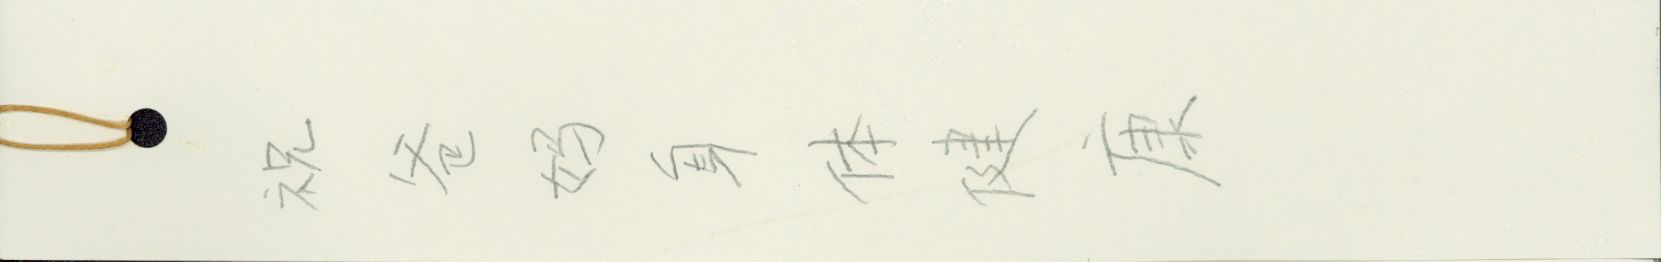 祝爸妈身体健康